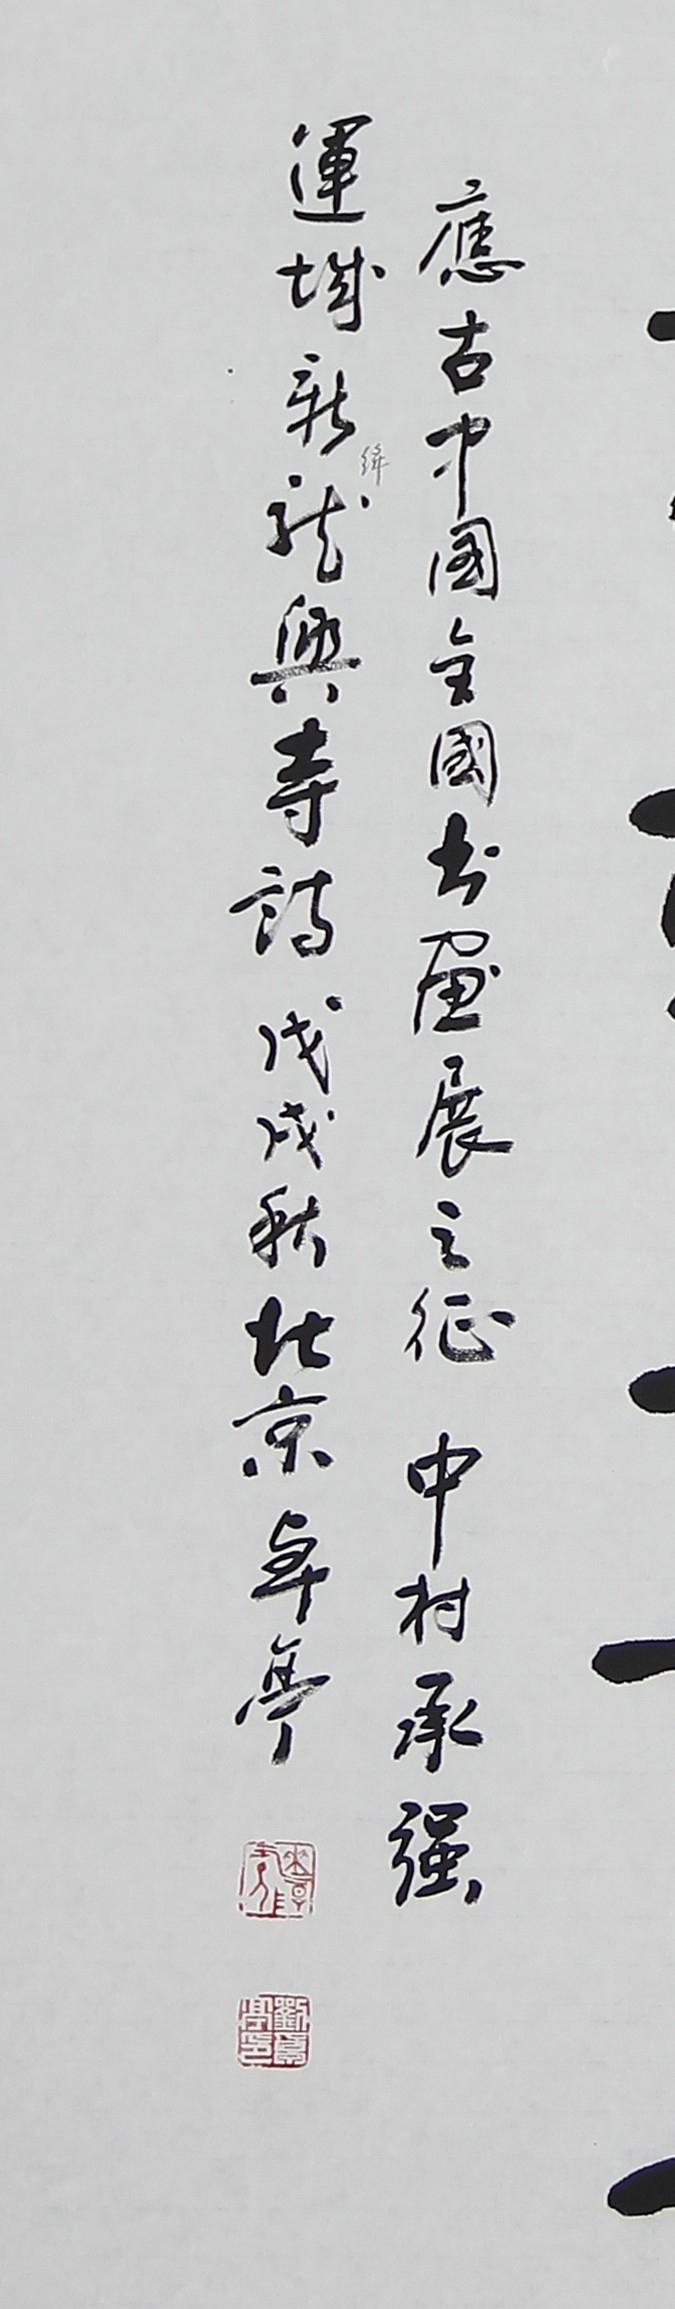 應古中国全國书画展之征 中村承强
運城新絳龙興寺詩 戊戌秋北京卓亭